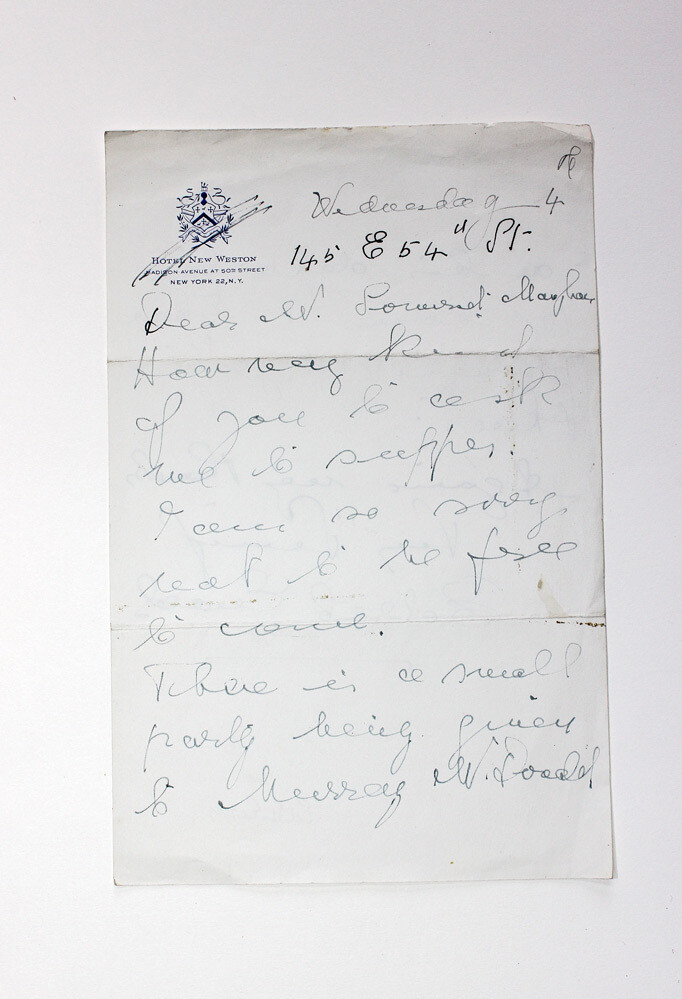 Wednesday 4th
145 E 54th St.
HOTEL NEW WESTON
MADISON AVENUE AT 50TH STREET
NEW YORK 22, N.Y.
Dear Mr. Somerset Maugham
How very kind
of you to ask
me to supper.
I am so sorry
not to be free
to come.
There is a small
party being given
to Murray